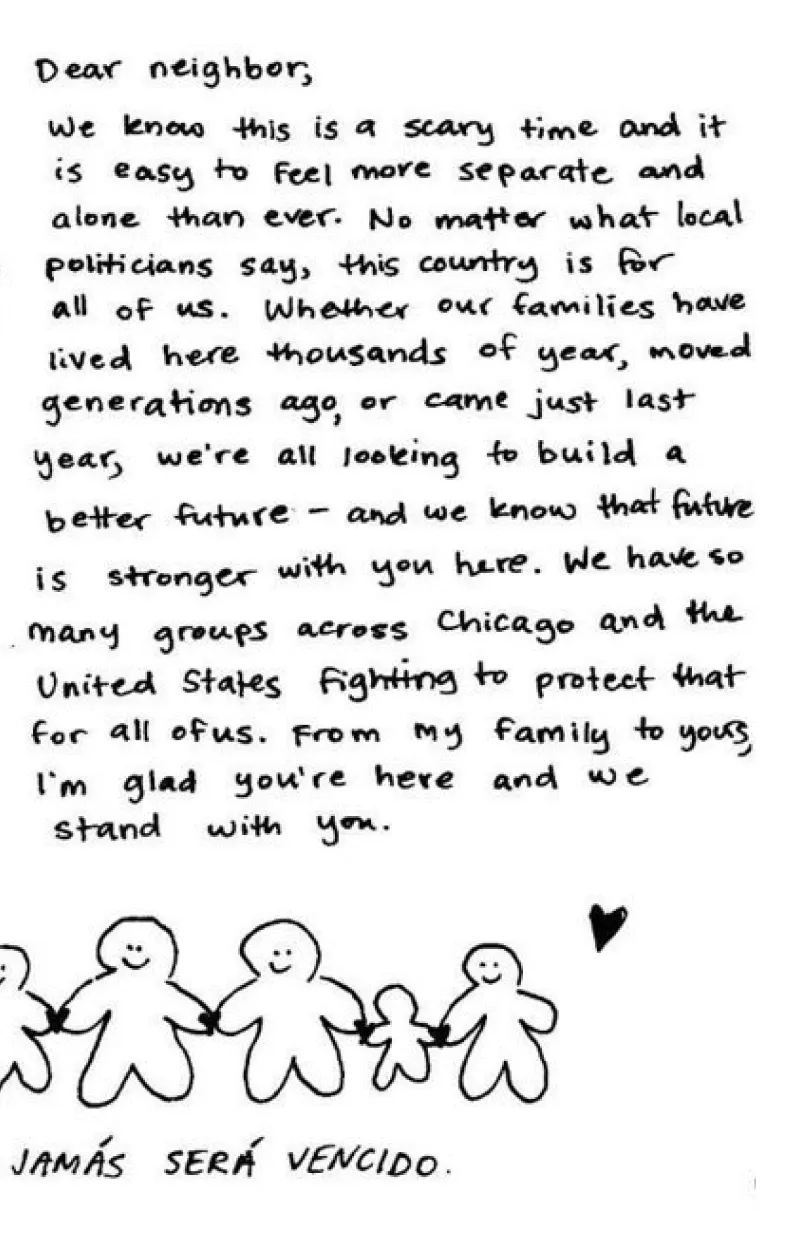 Dear neighbor,
We know this is a scary time and it
is easy to feel more separate and
alone than ever. No matter what local
politicians say, this country is for
all of us. Whether our families have
lived here thousands of year, moved
generations ago, or came just last
year, we're all looking to build a
better future - and we know that future
is stronger with you here. We have so
many groups across Chicago and the
United States fighting to protect that
for all of us. From my family to yours,
I'm glad you're here and we
stand with you.
JAMÁS SERÁ VENCIDO.